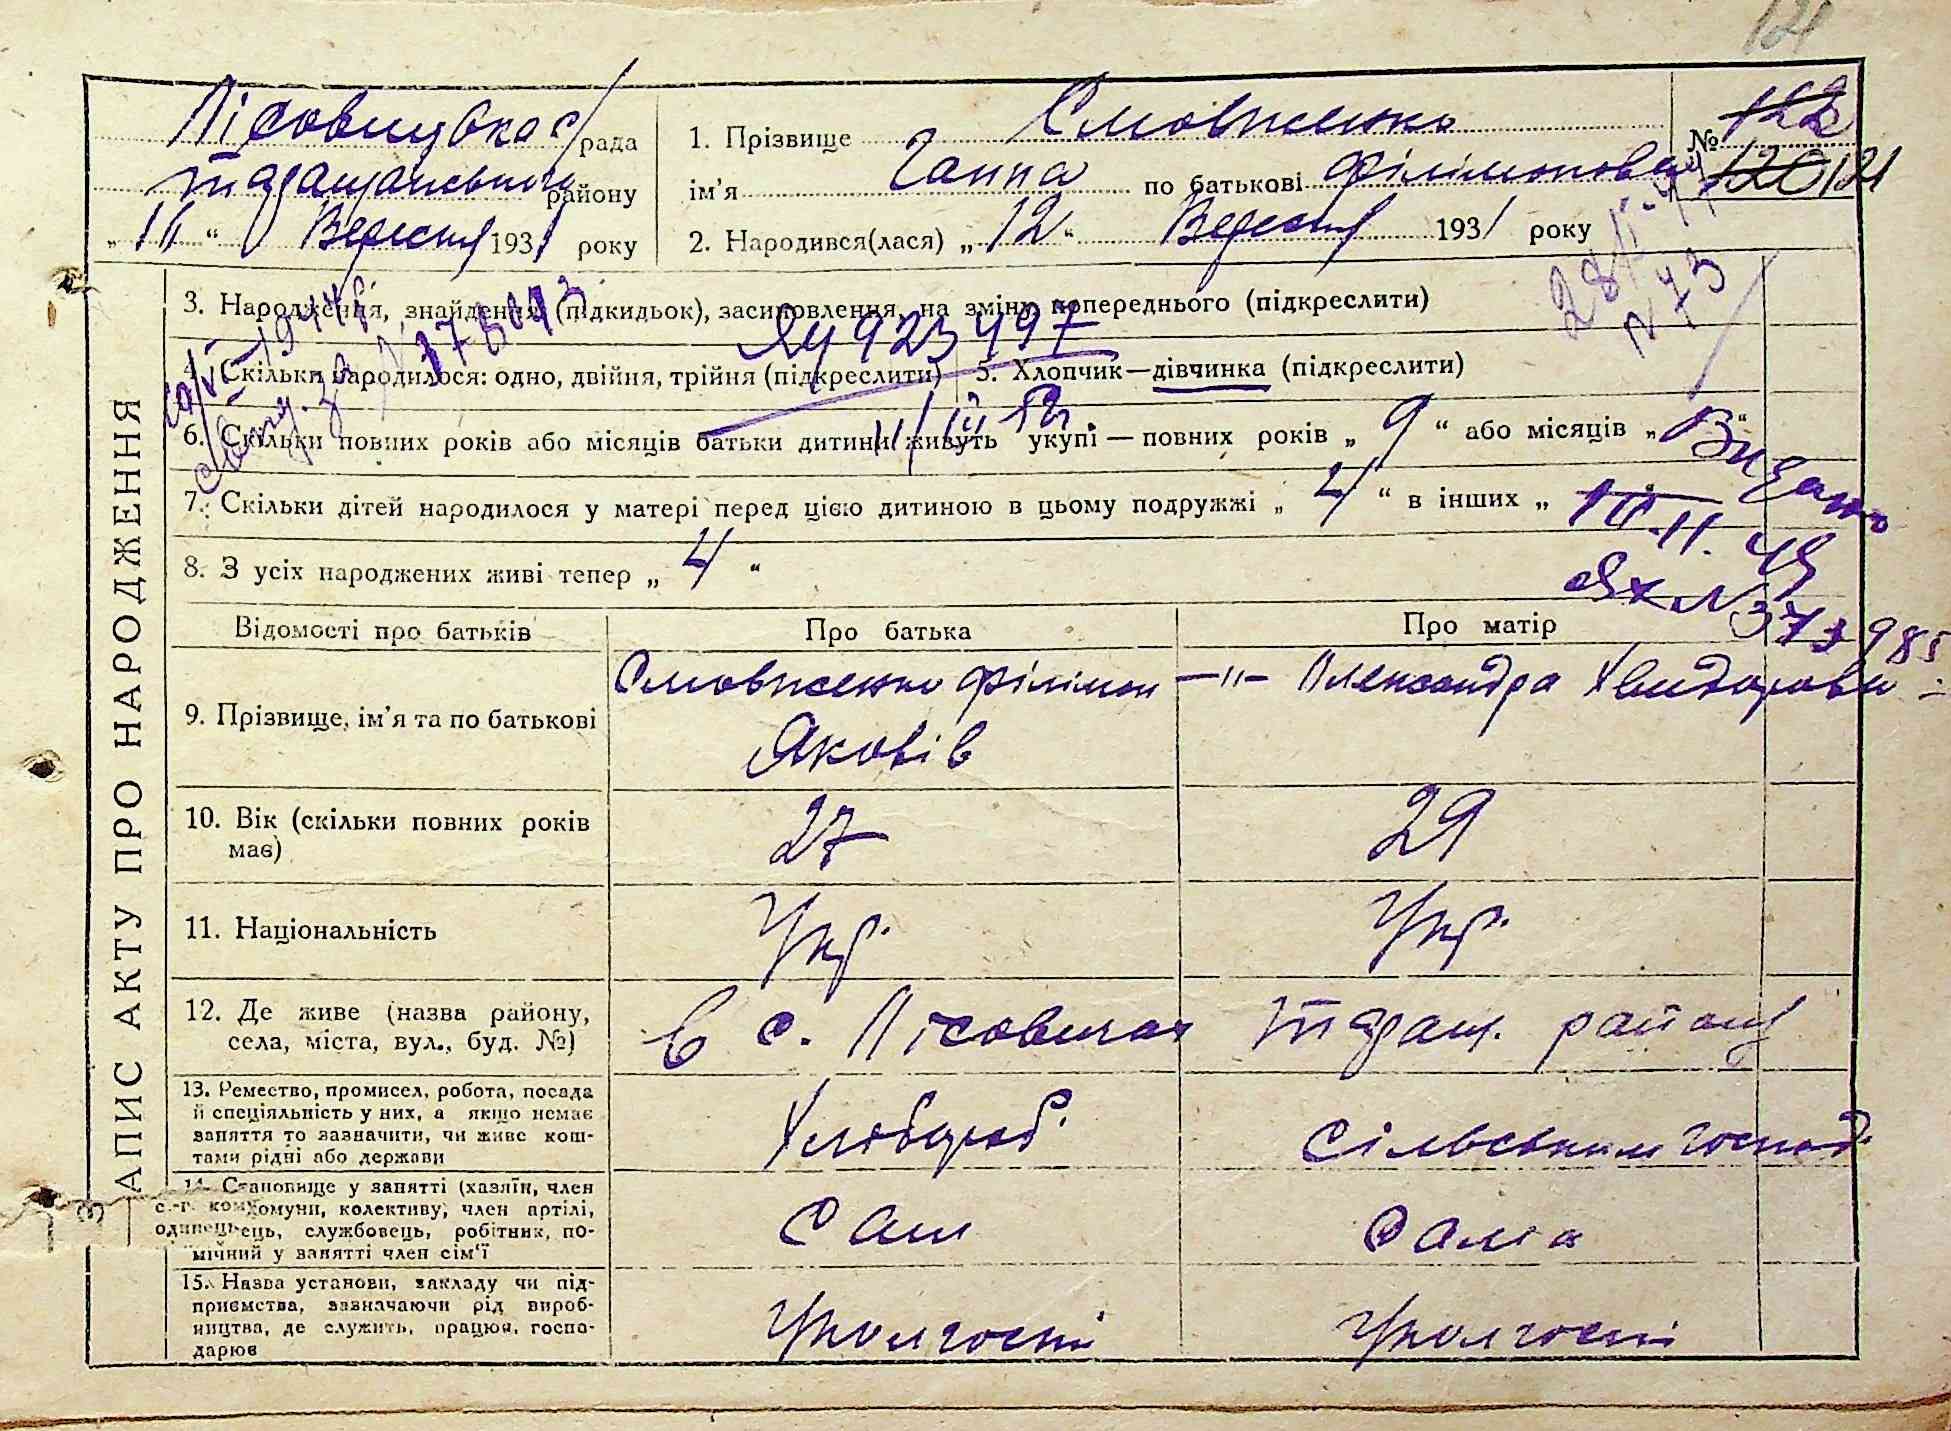 121
Лісовицька с/рада
Таращанського району
1931 року
1. Прізвище Смовженко
№ 122
ім’я Ганна по батькові Філімоновна
120 121
„ “ Вересня
2. Народився(лася) „12“ Вересня 1931 року
3. Народження, знайдення (підкидьок), засиновлення, на зміну попереднього (підкреслити)
4. Скільки народилося: одно, двійня, трійня (підкреслити)
5. Хлопчик—дівчинка (підкреслити)
6. Скільки повних років або місяців батьки дитини живуть укупі — повних років „ 9 “ або місяців „ “
7. Скільки дітей народилося у матері перед цією дитиною в цьому подружжі „ 4 “ в інших „
8. З усіх народжених живі тепер „ 4 “
Видано
ЗАПИС АКТУ ПРО НАРОДЖЕННЯ
Відомості про батьків
Про батька
Про матір
9. Прізвище, ім’я та по батькові
Смовженко Філімон
Яковів
—"— Олександра
10. Вік (скільки повних років має)
27
29
11. Національність
Укр.
Укр.
12. Де живе (назва району,
села, міста, вул., буд. №)
в с. Лісовичах Таращ. району
13. Ремество, промисел, робота, посада
й спеціяльність у них, а якщо немає
заняття то зазначити, чи живе кош-
тами рідні або держави
Хлібороб.
Сільським господ.
14. Становище у занятті (хазяїн, член
комуни, колективу, член артілі,
одинець, службовець, робітник, по-
мічний у занятті член сім’ї
Сам
Сама
15. Назва установи, закладу чи під-
приємства, зазначаючи рід вироб-
ництва, де служить, працює, госпо-
дарює
У колгоспі
У колгоспі